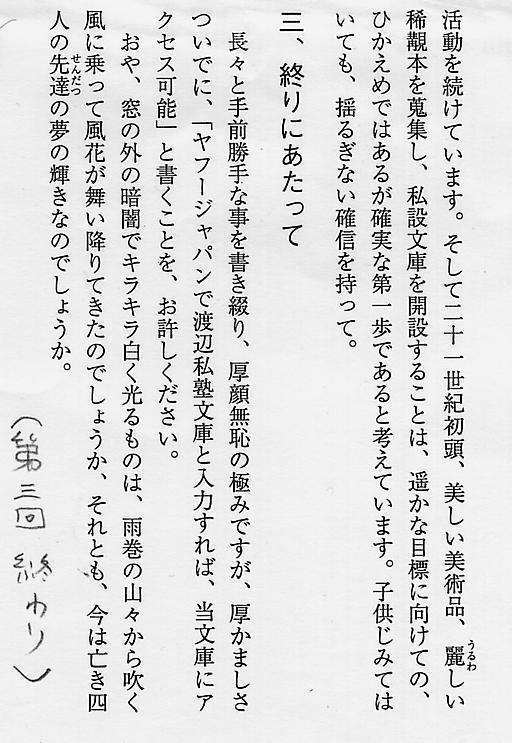 活動を続けています。そして二十一世紀初頭、美しい美術品、麗しい
うるわ
稀覯本を蒐集し、私設文庫を開設することは、遥かな目標に向けての、
ひかえめではあるが確実な第一歩であると考えています。子供じみては
いても、揺るぎない確信を持って。
三、終りにあたって
長々と手前勝手な事を書き綴り、厚顔無恥の極みですが、厚かましさ
ついでに、「ヤフージャパンで渡辺私塾文庫と入力すれば、当文庫にア
クセス可能」と書くことを、お許しください。
おや、窓の外の暗闇でキラキラ白く光るものは、雨巻の山々から吹く
風に乗って風花が舞い降りてきたのでしょうか、それとも、今は亡き四
人の先達の夢の輝きなのでしょうか。
せんだつ
（第三回 終わり）